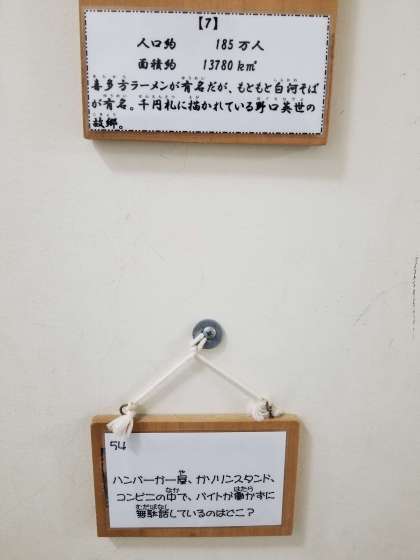 【7】
人口約 185万人
面積約 13780k㎡
喜多方ラーメンが有名だが、もともと白河そば
が有名。千円札に描かれている野口英世の
故郷。
54
ハンバーガー屋、ガソリンスタンド、
コンビニの中で、バイトが働かずに
無駄話しているのはどこ？